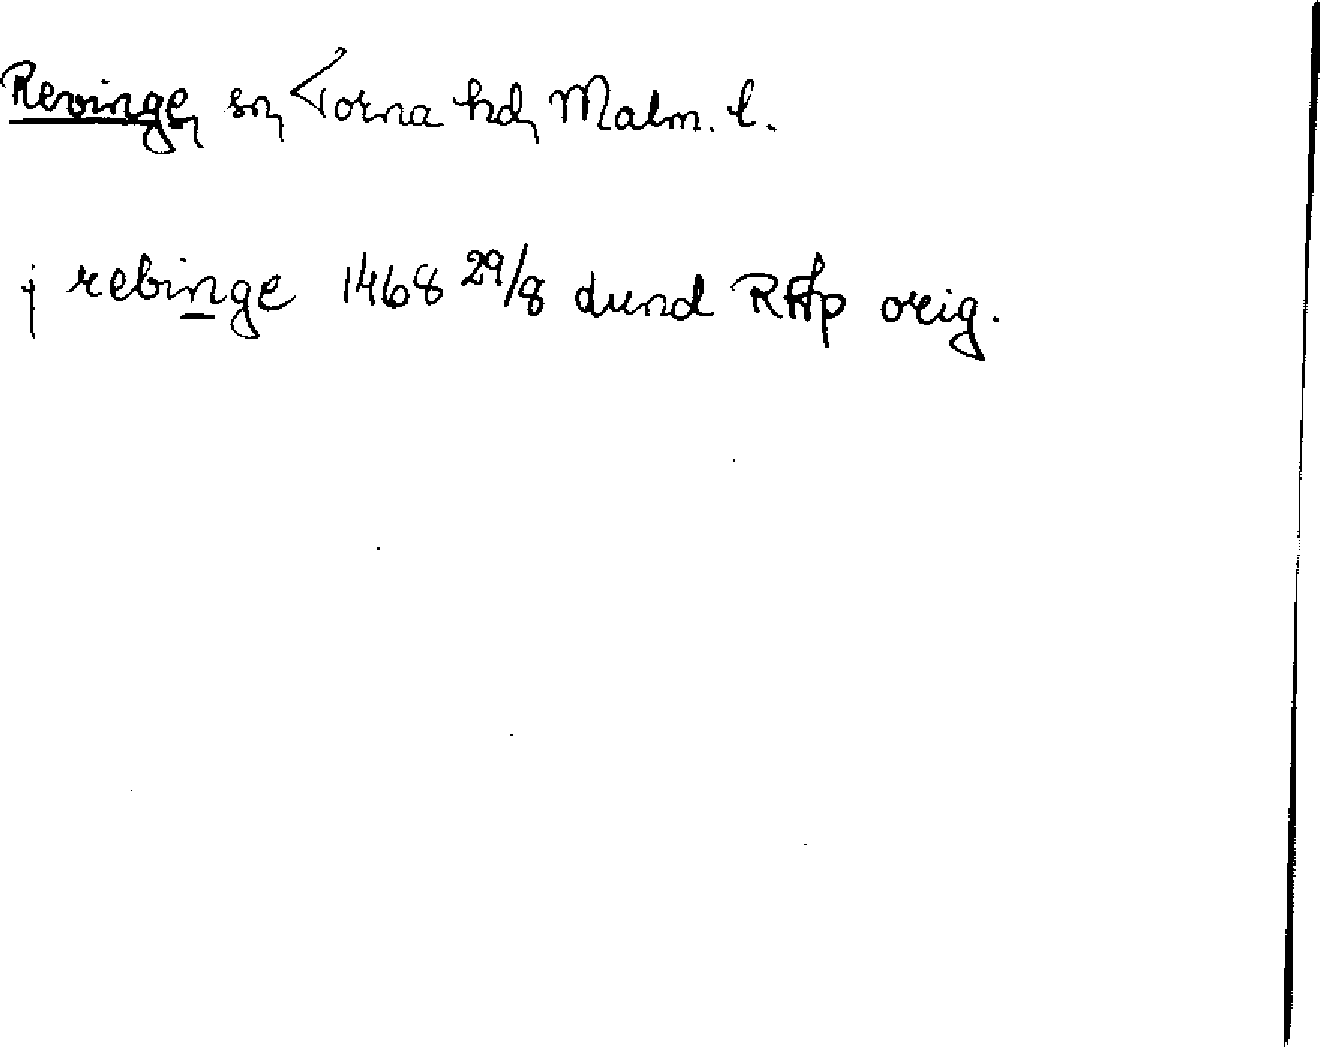 Revinge, sn, Torna hd, Malm. l.
j rebinge 1468 29/8 Lund RAp orig.